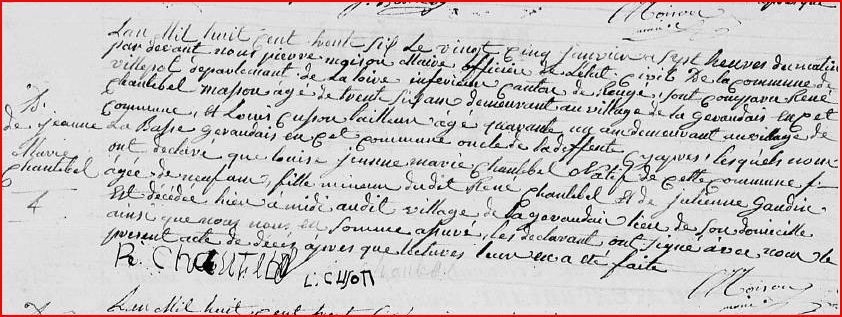 Moison
maire
L'an Mil huit Cent trente six Le vingt Cinq janvier a Sept heures du matin
par devant nous pierre moison Maire officier de L'état Civil De la Commune de
villepot département de la loire inferieure Canton de Rougé, sont Comparu René
Chantebel masson agé de trent six ans demeurant au village de la gevandais en cet
Commune, Et Louis Cusson tailleur agé quarante un an demeurant au village de
La Basse gevandais en cet Commune oncle de la deffent
ont declaré que louise jeanne marie Chantebel Native de Cette Commune
agée de neuf ans, fille mineure dudit René Chantebel Et de julienne Gaudin
Est décédée hier à midi audit village de la gevandais lieu de son domicille
ainsi que nous nous en somme assuré, les declarant ont signé avec nous le
présent acte de décès apres que lectures leur en a été faite
D.
de jeanne
Marie
Chantebel
4
R. Chantebel
L. CUSSON
Moison
maire
L'an Mil huit Cent trente